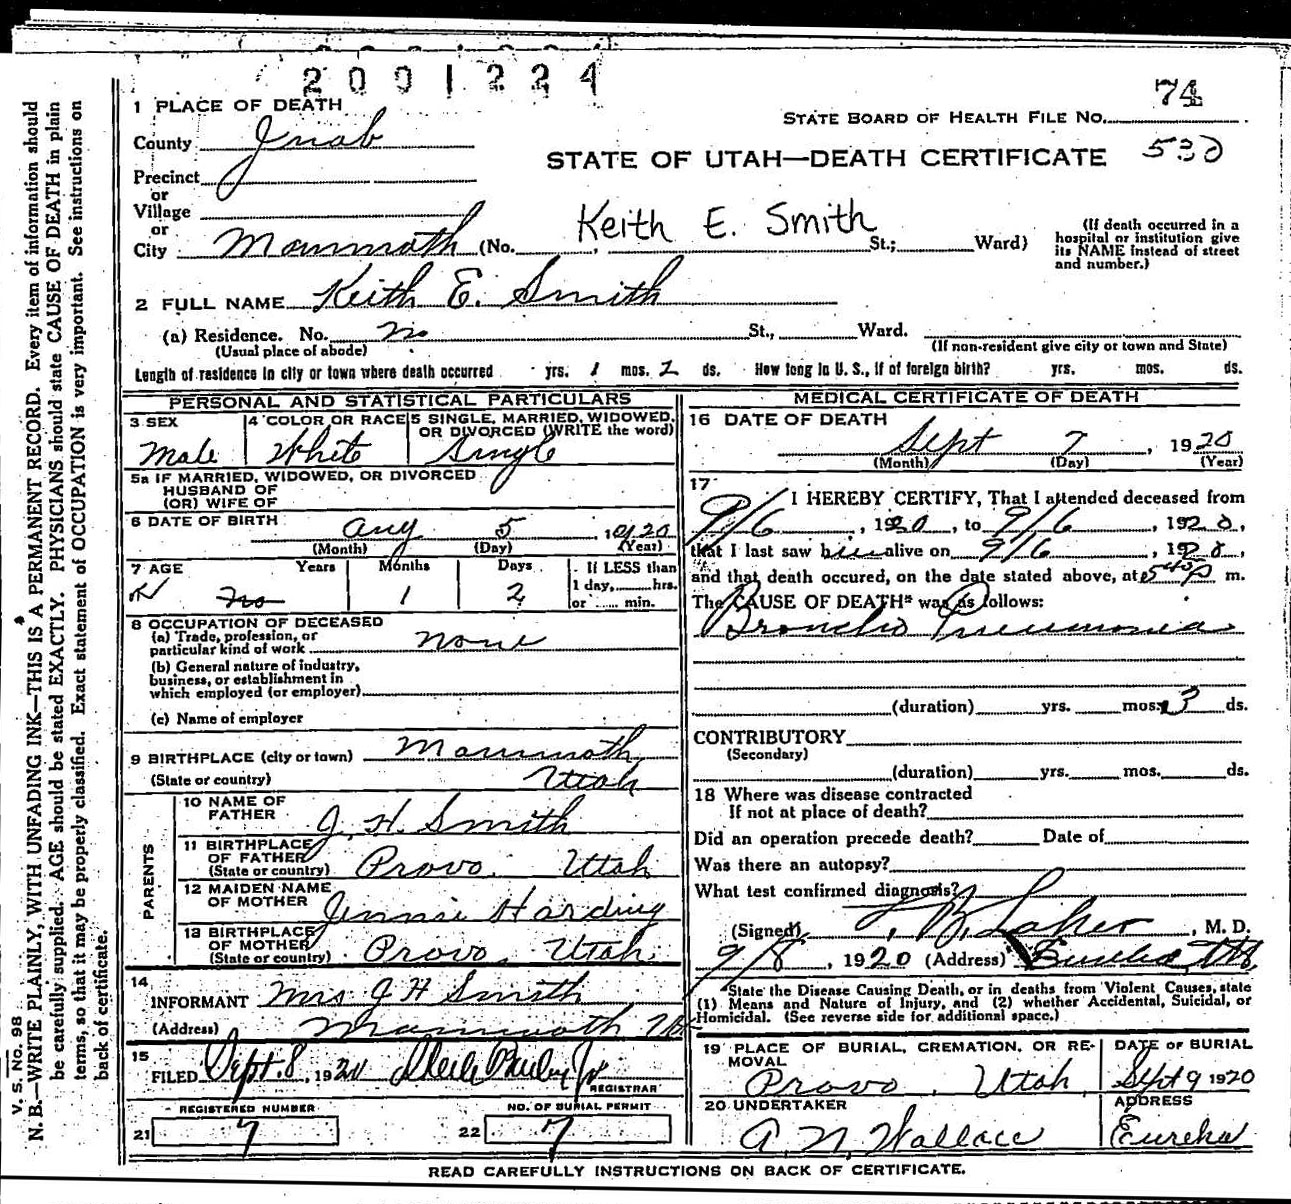 2001224
74
1 PLACE OF DEATH
STATE BOARD OF HEALTH FILE No.
County Juab
STATE OF UTAH—DEATH CERTIFICATE 530
Precinct
or
Village
or
City Mammoth (No. Keith E. Smith St.; Ward)
(If death occurred in a hospital or institution give its NAME instead of street and number.)
2 FULL NAME Keith E. Smith
(a) Residence. No. St., Ward.
(Usual place of abode) (If non-resident give city or town and State)
Length of residence in city or town where death occurred yrs. 1 mos. 2 ds. How long in U. S., if of foreign birth? yrs. mos. ds.
PERSONAL AND STATISTICAL PARTICULARS
3 SEX
Male
4 COLOR OR RACE
White
5 SINGLE, MARRIED, WIDOWED, OR DIVORCED (WRITE the word)
Single
5a IF MARRIED, WIDOWED, OR DIVORCED
HUSBAND OF
(OR) WIFE OF
6 DATE OF BIRTH
Aug 5, 1920
(Month) (Day) (Year)
7 AGE Years Months Days If LESS than
no 1 2 1 day, hrs.
or min.
8 OCCUPATION OF DECEASED
(a) Trade, profession, or
particular kind of work none
(b) General nature of industry,
business, or establishment in
which employed (or employer)
(c) Name of employer
9 BIRTHPLACE (city or town) Mammoth
(State or country) Utah
PARENTS
10 NAME OF
FATHER J. H. Smith
11 BIRTHPLACE
OF FATHER
(State or country) Provo. Utah
12 MAIDEN NAME
OF MOTHER Jennie Harding
13 BIRTHPLACE
OF MOTHER
(State or country) Provo, Utah.
14
INFORMANT Mrs J H Smith
(Address) Mammoth
15
FILED Sept. 8, 1920
REGISTRAR
REGISTERED NUMBER
21 7
NO. OF BURIAL PERMIT
22 7
MEDICAL CERTIFICATE OF DEATH
16 DATE OF DEATH
Sept 7, 1920
(Month) (Day) (Year)
17
I HEREBY CERTIFY, That I attended deceased from
9/6, 1920, to 9/6, 1920,
that I last saw him alive on 9/6, 1920,
and that death occured, on the date stated above, at m.
The CAUSE OF DEATH* was as follows:
Broncho Pneumonia
(duration) yrs. mos. 3 ds.
CONTRIBUTORY
(Secondary)
(duration) yrs. mos. ds.
18 Where was disease contracted
If not at place of death?
Did an operation precede death? Date of
Was there an autopsy?
What test confirmed diagnosis?
(Signed) , M. D.
9/8, 1920 (Address) Eureka,
State the Disease Causing Death, or in deaths from Violent Causes, state
(1) Means and Nature of Injury, and (2) whether Accidental, Suicidal, or
Homicidal. (See reverse side for additional space.)
19 PLACE OF BURIAL, CREMATION, OR RE-
MOVAL
Provo, Utah
DATE OF BURIAL
Sept 9 1920
20 UNDERTAKER
A. N. Wallace
ADDRESS
Eureka
READ CAREFULLY INSTRUCTIONS ON BACK OF CERTIFICATE.
V. S. No. 98
N. B.—WRITE PLAINLY, WITH UNFADING INK—THIS IS A PERMANENT RECORD. Every item of information should
be carefully supplied. AGE should be stated EXACTLY. PHYSICIANS should state CAUSE OF DEATH in plain
terms, so that it may be properly classified. Exact statement of OCCUPATION is very important. See instructions on
back of certificate.